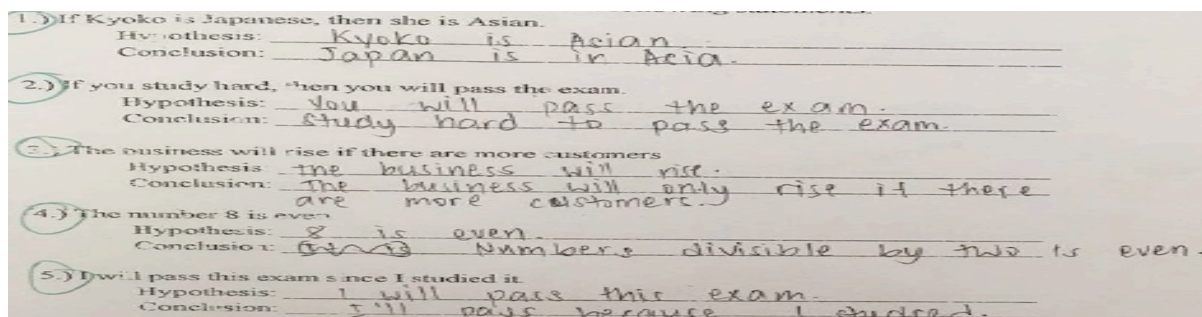 1.) If Kyoko is Japanese, then she is Asian.
Hypothesis: Kyoko is Asian
Conclusion: Japan is in Asia.
2.) If you study hard, then you will pass the exam.
Hypothesis: You will pass the exam.
Conclusion: Study hard to pass the exam.
3.) The business will rise if there are more customers
Hypothesis the business will rise.
Conclusion: The business will only rise if there
are more customers.
4.) The number 8 is even
Hypothesis: 8 is even.
Conclusion: Numbers divisible by two is even.
5.) I will pass this exam since I studied it.
Hypothesis: I will pass this exam.
Conclusion: I'll pass because I studied.